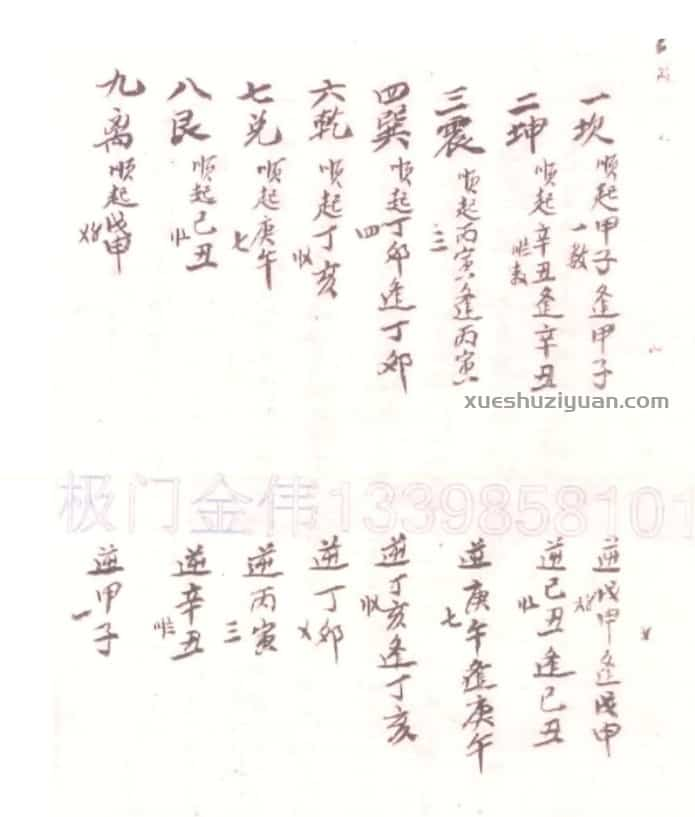 一坎 顺起甲子逢甲子
一数
二坤 顺起辛丑逢辛丑
三震 顺起丙寅逢丙寅
三
四巽 顺起丁卯逢丁卯
四
六乾 顺起丁亥
七兑 顺起庚午
七
八艮 顺起己丑
九离 顺起戊申
xueshuziyuan.com
极门金伟1339858101
逆戊申逢戊申
逆己丑逢己丑
逆庚午逢庚午
七
逆丁亥逢丁亥
逆丁卯
逆丙寅
三
逆辛丑
逆甲子
一